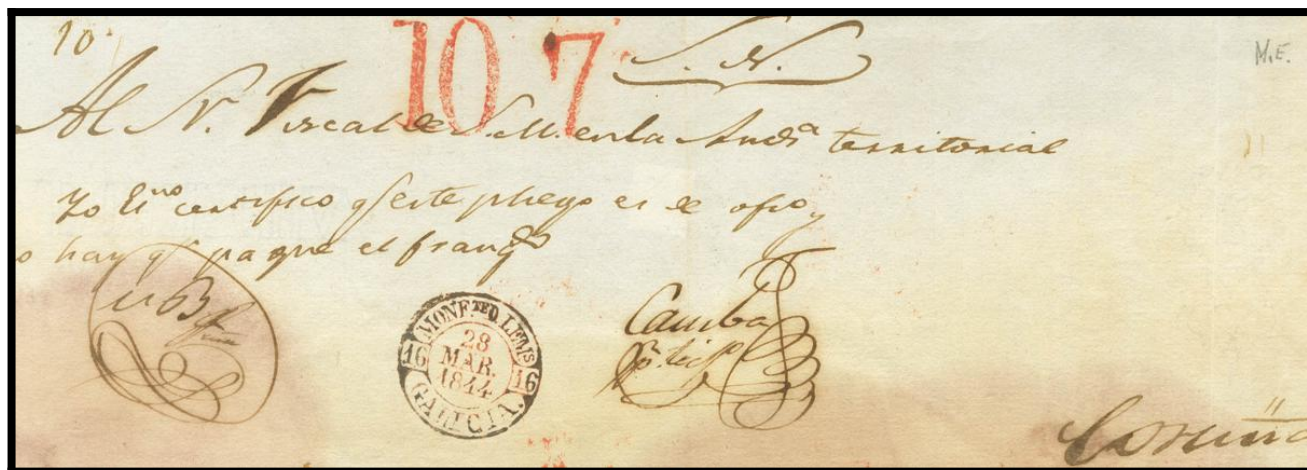 10
10 7
S. N.
M.E.
Al Sr. Fiscal de S. M. en la Audª territorial
Yo Esno certifico q este pliego es de ofio y
o hay qn pague el franqo
Camba
MONF.TED LEMS
16 28 MAR. 1844 16
GALICIA.
Coruña